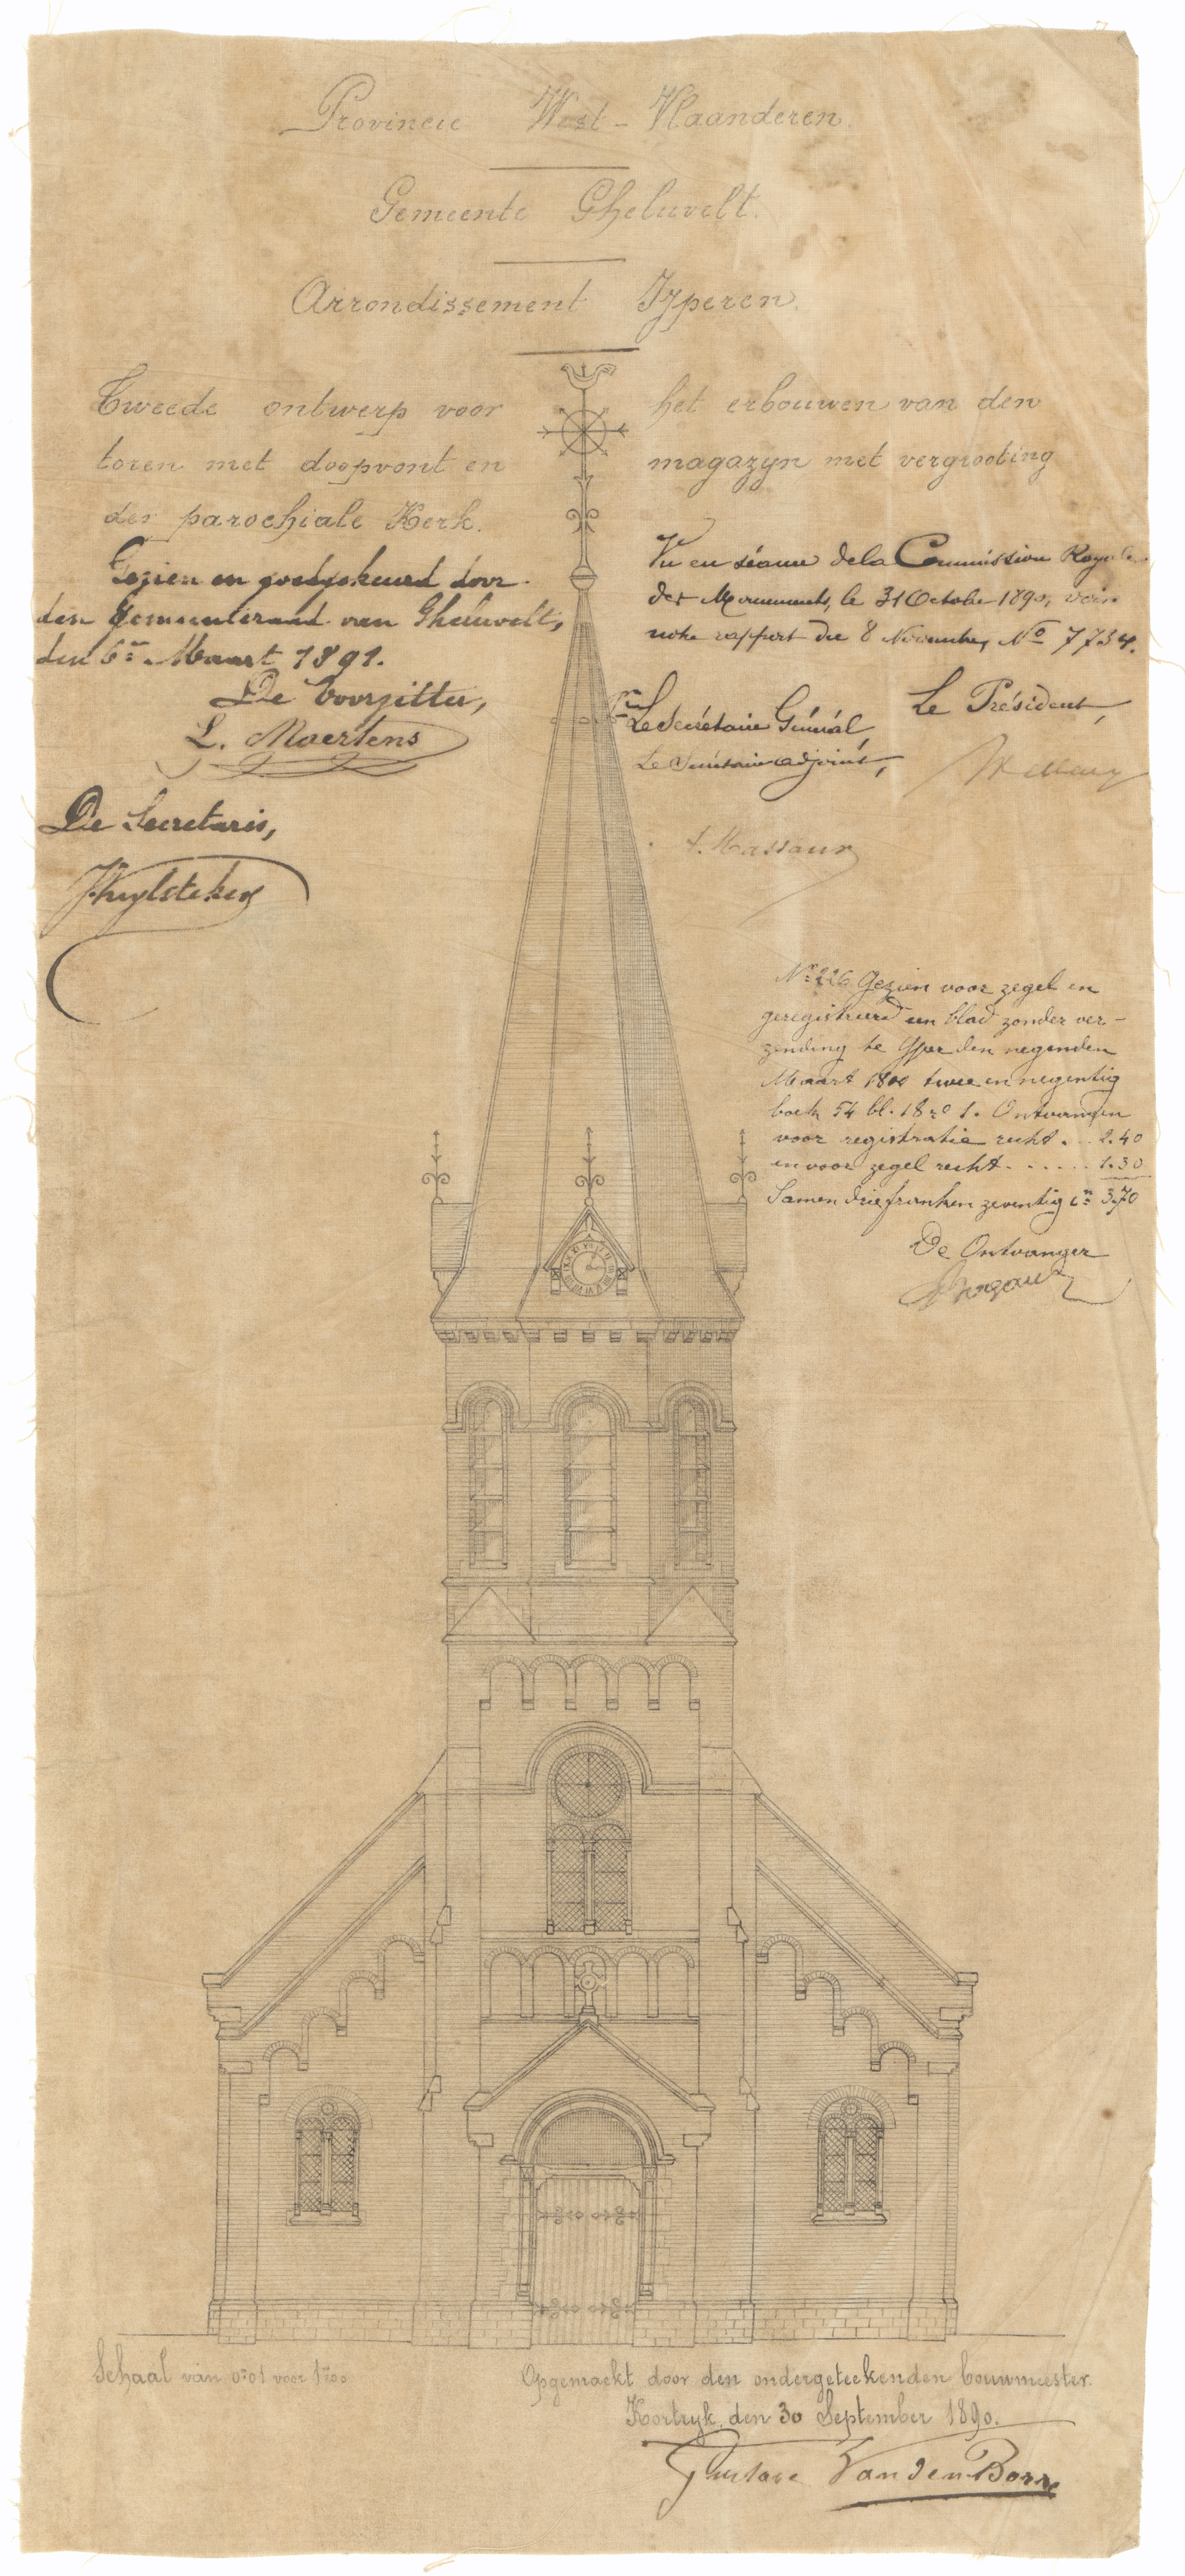 Provincie West-Vlaanderen.
Gemeente Gheluvelt.
Arrondissement Ijperen.
Tweede ontwerp voor het erbouwen van den
toren met doopvont en magazyn met vergrooting
der parochiale Kerk.
Gezien en goedgekeurd door
den Gemeenteraad van Gheluvelt,
den 6en Maart 1891.
De Voorzitter,
L. Maertens
De Secretaris,
Vu en séance de la Commission Royale
des Monuments, le 31 Octobre 1890, voir
notre rapport du 8 Novembre, No 7734.
Le Président,
Le Secrétaire Général,
Le Secrétaire adjoint,
Nr 226 Gezien voor zegel en
geregistreerd een blad zonder ver-
zending te Yper den negenden
Maart 1800 twee en negentig
boek 54 bl. 18 1. Ontvangen
voor registratie recht . . . 2.40
en voor zegel recht . . . . . . 1.30
Samen drie franken zeventig cn 3.70
De Ontvanger
Schaal van 0m01 voor 1m00
Opgemaekt door den ondergeteekenden bouwmeester.
Kortryk, den 30 September 1890.
Gustave Vanden Borre